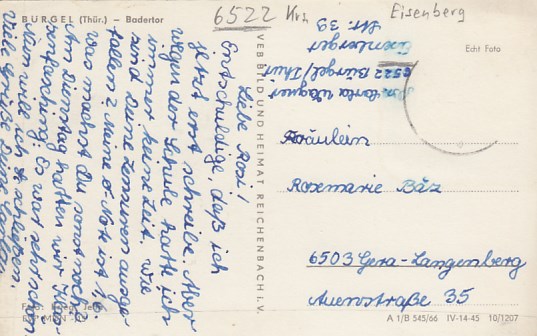 BÜRGEL (Thür.) – Badertor
6522 Krs Eisenberg
Echt Foto
Liebe Rosi!
Entschuldige, daß ich
jetzt erst schreibe. Aber
wegen der Schule hatte ich
immer keine Zeit. Wie
sind Deine Zensuren ausge-
fallen? Meine
was machst du sonst noch?
Am Dienstag hatten wir
Es war
Nun will ich schließen.
Viele Grüße Deine
VEB BILD UND HEIMAT REICHENBACH i. V.
Wagner
6522 Bürgel/Thür
Eisenberger
Str. 39
Fräulein
Rosemarie Bäz
6503 Gera-Langenberg
Auenstraße 35
Foto:
A 1/B 545/66 IV-14-45 10/1207